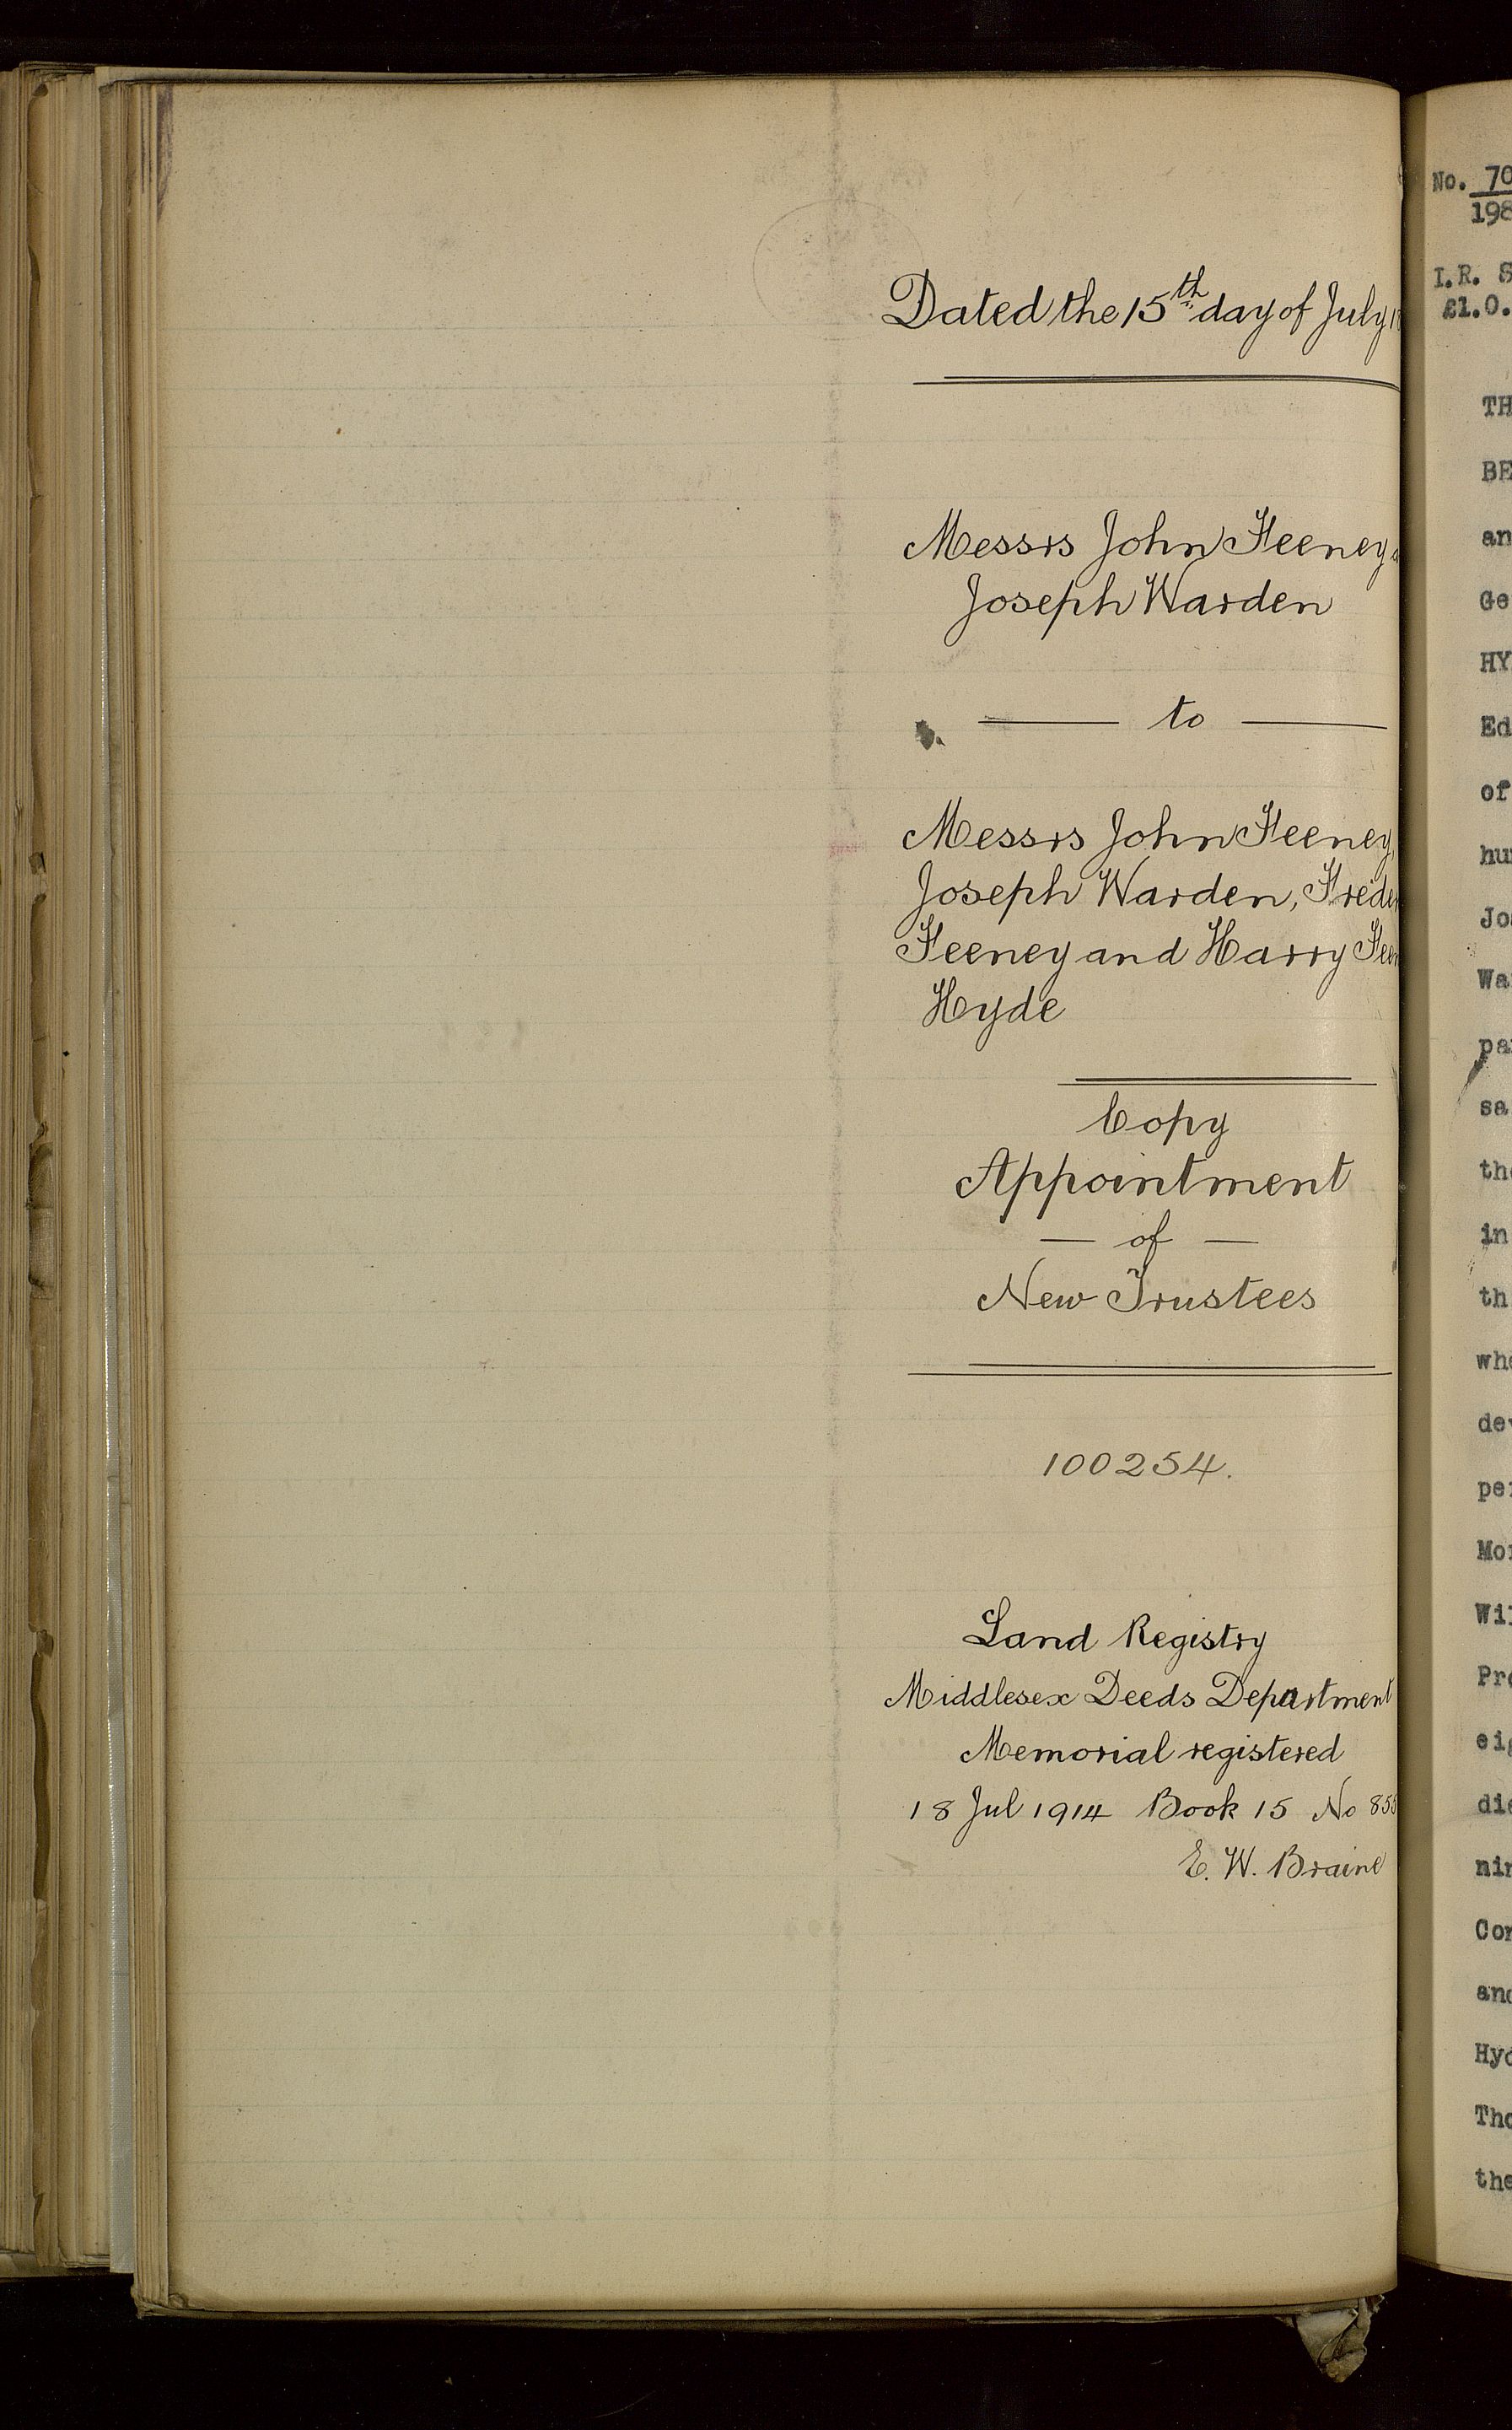 Dated the 15th day of July
Messrs John Feeney
Joseph Warden
to
Messrs John Feeney,
Joseph Warden,
Feeney and Harry
Hyde
Copy
Appointment
of
New Trustees
100254.
Land Registry
Middlesex Deeds Department
Memorial registered
18 Jul 1914 Book 15 No
E. W. Braine
No. 70
198
I.R. S
£1.0.
TH
BE
an
Ge
HY
Ed
of
hu
Jo
Wa
pa
sa
the
in
th
whe
de
per
Mo
Wil
Pro
eig
die
nin
Co
and
Hyd
Tho
the